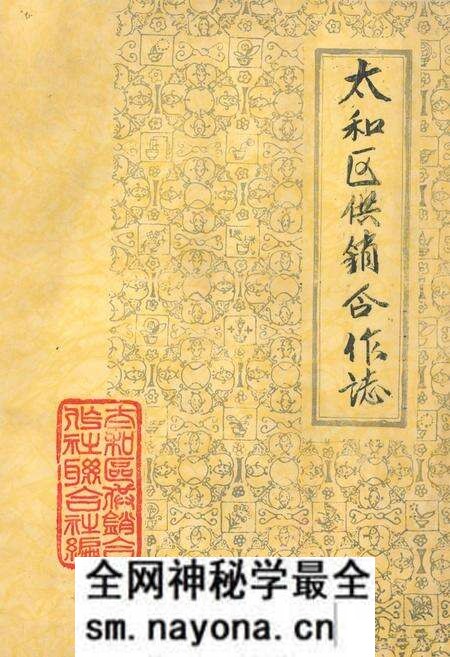 太和区供銷合作誌
太和區供銷合
作社聯合社編
全网神秘学最全
sm.nayona.cn